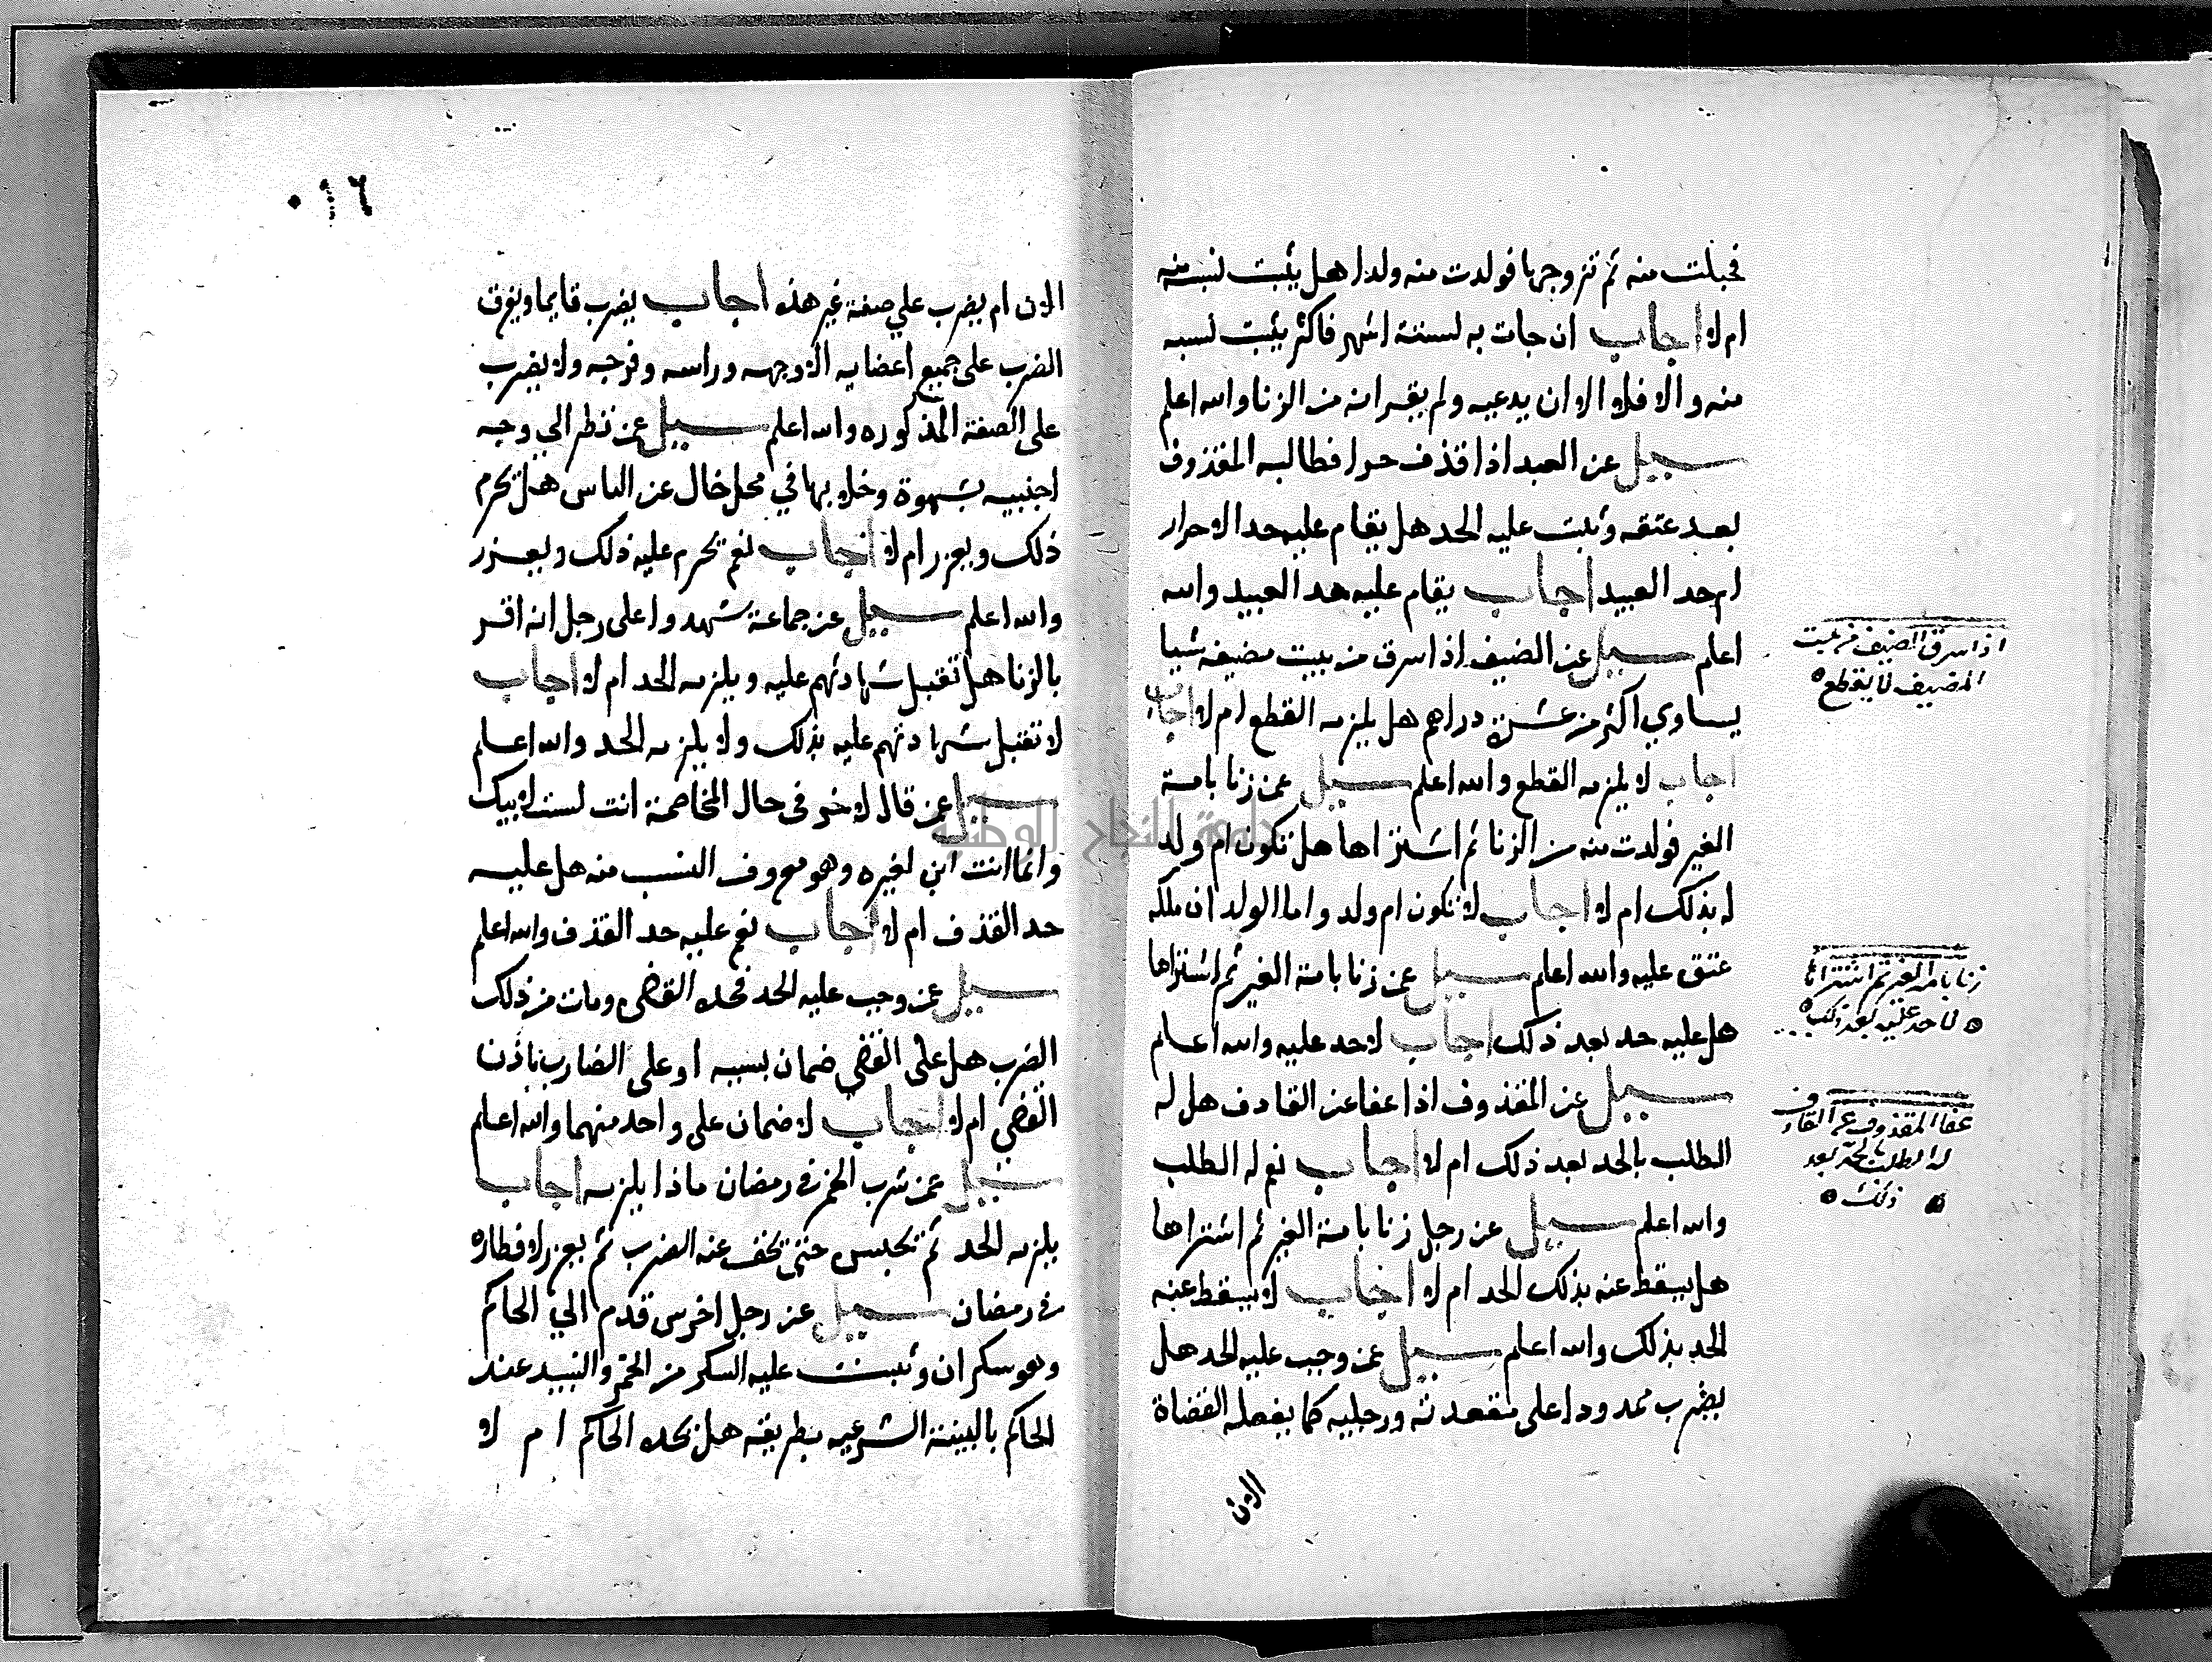 فحبلت منه ثم تزوجها فولدت منه ولدا هل يثبت نسبه منه
ام لا اجاب ان جات به لستة اشهر فاكثر يثبت نسبه
منه والا فلا الا ان يدعيه ولم يقر انه من الزنا والله اعلم
سيل عن العبد اذا قذف حرا فطالبه المقذوف
بعد عتقه وثبت عليه الحد هل يقام عليه حد الاحرار
ام حد العبيد اجاب يقام عليه حد العبيد والله
اعلم سيل عن الضيف اذا سرق من بيت مضيفه شيا
يساوي اكثر من عشرة دراهم هل يلزمه القطع ام لا اجاب
اجاب لا يلزمه القطع والله اعلم سيل عمن زنا بامة
الغير فولدت منه من الزنا ثم اشتراها هل تكون ام ولد
له بذلك ام لا اجاب لا تكون ام ولد واما الولد ان ملكه
عتق عليه والله اعلم سيل عمن زنا بامة الغير ثم اشتراها
هل عليه حد بعد ذلك اجاب لا حد عليه والله اعلم
سيل عن المقذوف اذا عفا عن القادف هل له
الطلب بالحد بعد ذلك ام لا اجاب نعم له الطلب
والله اعلم سيل عن رجل زنا بامة الغير ثم اشتراها
هل يسقط عنه بذلك الحد ام لا اجاب لا يسقط عنه
الحد بذلك والله اعلم سيل عمن وجب عليه الحد هل
يضرب ممدودا على مقعدته ورجليه كما يفعله القضاة
الان
اذا سرق الضيف من بيت
المضيف لا يقطع
زنا بامة الغير ثم اشتراها
لا حد عليه بعد ذلك
عفا المقذوف عن القادف
له الطلب بالحد بعد
ذلك
٠١٦
الان ام يضرب علي صفة غير هذه اجاب يضرب قايما ويفرق
الضرب على جميع اعضايه الا وجهه وراسه وفرجه ولا يضرب
على الصفة المذكوره والله اعلم سيل عمن نظر الي وجه
اجنبيه بشهوة وخلا بها في محل خال عن الناس هل يحرم
ذلك ويعزر ام لا اجاب نعم يحرم عليه ذلك ويعزر
والله اعلم سيل عن جماعة شهدوا على رجل انه اقر
بالزنا هل تقبل شهادتهم عليه ويلزمه الحد ام لا اجاب
لا تقبل شهادتهم عليه بذلك ولا يلزمه الحد والله اعلم
سيل عمن قال لاخر في حال المخاصمة انت لست لابيك
وانما انت ابن لغيره وهو معروف النسب منه هل عليه
حد القذف ام لا اجاب نعم عليه حد القذف والله اعلم
سيل عمن وجب عليه الحد فحده القضي ومات من ذلك
الضرب هل على القضي ضمان بسببه او على الضارب باذن
القضي ام لا اجاب لا ضمان على واحد منهما والله اعلم
سيل عمن شرب الخمر في رمضان ماذا يلزمه اجاب
يلزمه الحد ثم يحبس حتى يخف عنه الضرب ثم يعزر لافطاره
في رمضان سيل عن رجل اخرس قدم الي الحاكم
وهو سكران وثبت عليه السكر من الخمر والنبيد عند
الحاكم بالبينة الشرعيه بطريقه هل يحده الحاكم ام لا
جامعة النجاح الوطنية